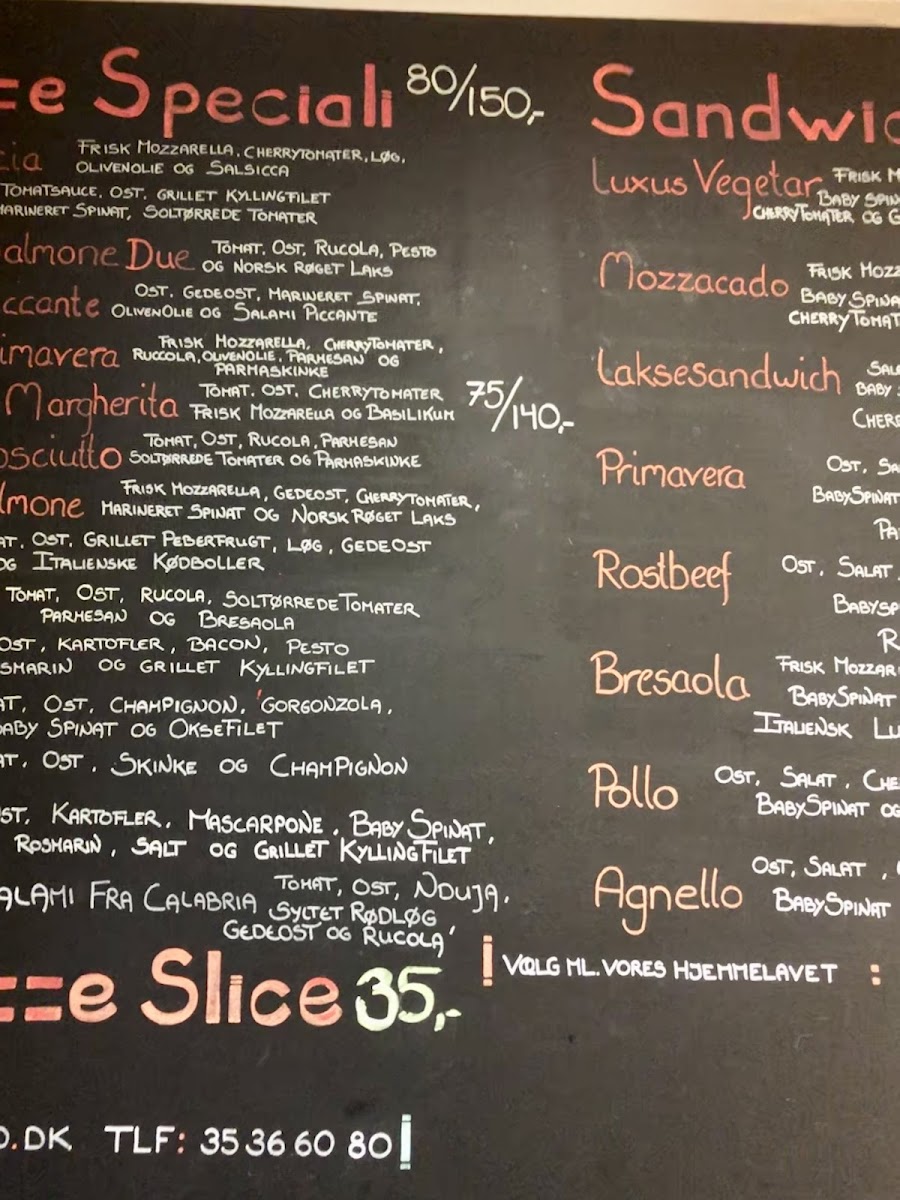 e Speciali 80/150,-
cia FRISK MOZZARELLA, CHERRYTOMATER, LØG,
OLIVENOLIE OG SALSICCA
TOMATSAUCE, OST, GRILLET KYLLINGFILET
MARINERET SPINAT, SOLTØRREDE TOMATER
almone Due TOMAT, OST, RUCOLA, PESTO
OG NORSK RØGET LAKS
ccante OST, GEDEOST, MARINERET SPINAT,
OLIVENOLIE OG SALAMI PICCANTE
imavera FRISK MOZZARELLA, CHERRYTOMATER,
RUCCOLA, OLIVENOLIE, PARMESAN OG
PARMASKINKE
Margherita TOMAT, OST, CHERRYTOMATER
FRISK MOZZARELLA OG BASILIKUM 75/140,-
osciutto TOMAT, OST, RUCOLA, PARMESAN
SOLTØRREDE TOMATER OG PARMASKINKE
lmone FRISK MOZZARELLA, GEDEOST, CHERRYTOMATER,
MARINERET SPINAT OG NORSK RØGET LAKS
AT, OST, GRILLET PEBERFRUGT, LØG, GEDEOST
OG ITALIENSKE KØDBOLLER
TOMAT, OST, RUCOLA, SOLTØRREDE TOMATER
PARMESAN OG BRESAOLA
OST, KARTOFLER, BACON, PESTO
SMARIN OG GRILLET KYLLINGFILET
AT, OST, CHAMPIGNON, GORGONZOLA,
BABY SPINAT OG OKSEFILET
AT, OST, SKINKE OG CHAMPIGNON
ST, KARTOFLER, MASCARPONE, BABY SPINAT,
ROSMARIN, SALT OG GRILLET KYLLINGFILET
ALAMI FRA CALABRIA TOMAT, OST, NDUJA,
SYLTET RØDLØG
GEDEOST OG RUCOLA
zze Slice 35,-
O.DK TLF: 35 36 60 80!
Sandwic
Luxus Vegetar FRISK M
BABY SPIN
CHERRYTOMATER OG G
Mozzacado FRISK MOZZ
BABY SPINA
CHERRYTOMAT
Laksesandwich SALA
BABY S
CHERR
Primavera OST, SA
BABYSPINAT
PA
Rostbeef OST, SALAT,
BABYSP
R
Bresaola FRISK MOZZAR
BABYSPINAT
ITALIENSK LU
Pollo OST, SALAT, CHE
BABYSPINAT OG
Agnello OST, SALAT,
BABYSPINAT
! VÆLG ML. VORES HJEMMELAVET :